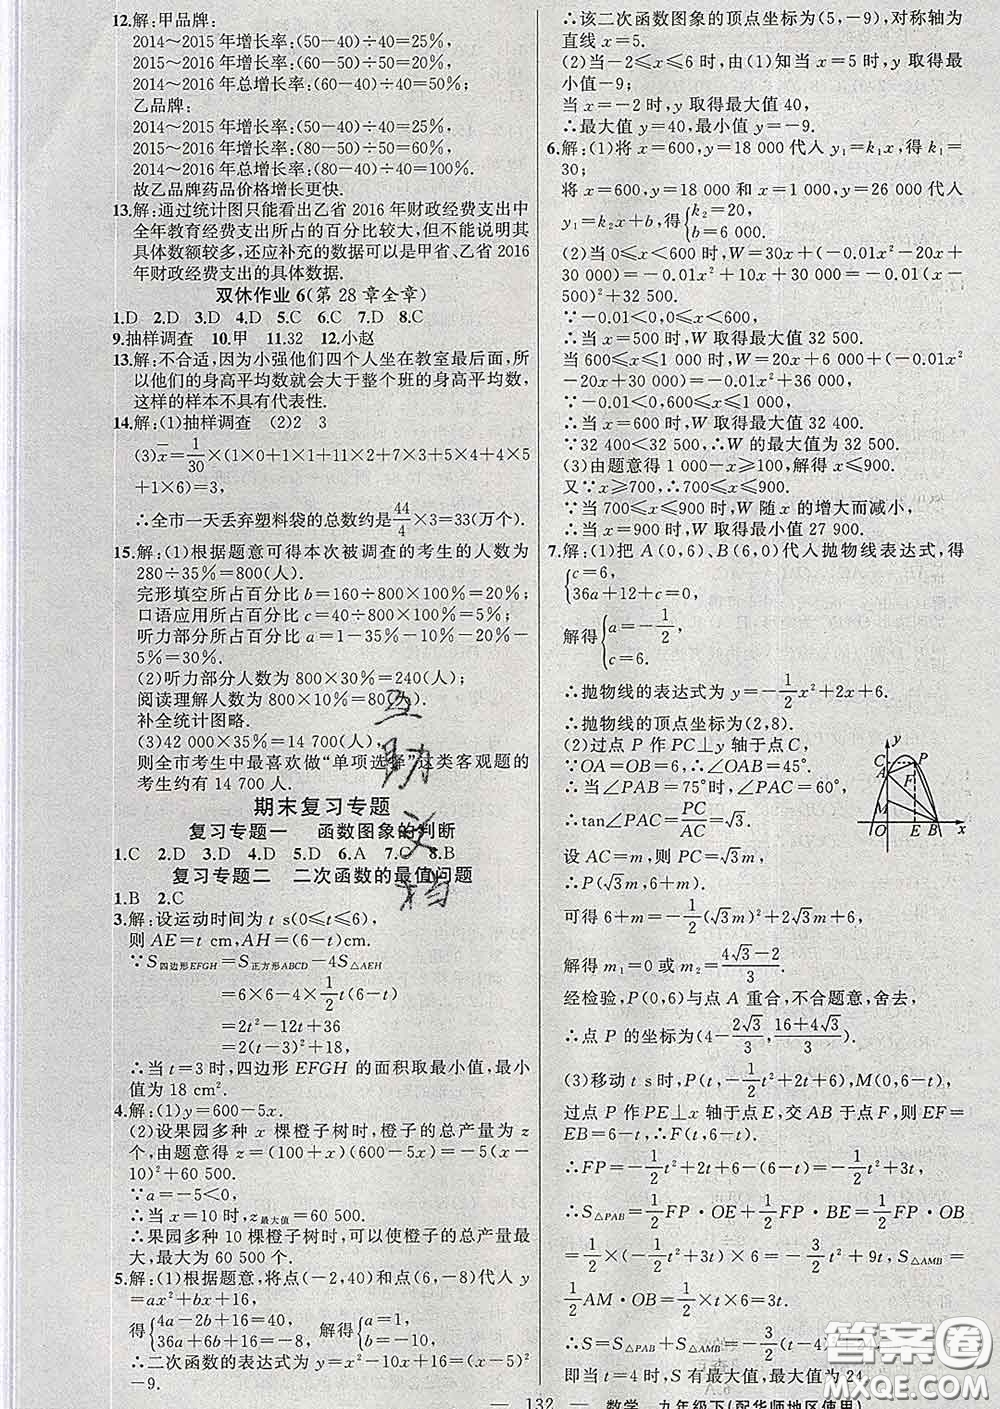 12.解:甲品牌:
2014～2015 年增长率:(50-40)÷40=25%,
2015～2016 年增长率:(60-50)÷50=20%,
2014～2016 年总增长率:(60-40)÷40=50%.
乙品牌:
2014～2015 年增长率:(50-40)÷40=25%,
2015～2016 年增长率:(80-50)÷50=60%,
2014～2016 年总增长率:(80-40)÷40=100%.
故乙品牌药品价格增长更快.
13.解:通过统计图只能看出乙省 2016 年财政经费支出中
全年教育经费支出所占的百分比较大,但不能说明其
具体数额较多,还应补充的数据可以是甲省、乙省 2016
年财政经费支出的具体数据.
双休作业 6(第 28 章全章)
1.D 2.D 3.D 4.D 5.C 6.C 7.D 8.C
9.抽样调查 10.甲 11.32 12.小赵
13.解:不合适,因为小强他们四个人坐在教室最后面,所
以他们的身高平均数就会大于整个班的身高平均数,
这样的样本不具有代表性.
14.解:(1)抽样调查 (2)2 3
(3)x̄=1/30×(1×0+1×1+11×2+7×3+5×4+4×5
+1×6)=3,
∴全市一天丢弃塑料袋的总数约是44/4×3=33(万个).
15.解:(1)根据题意可得本次被调查的考生的人数为
280÷35%=800(人).
完形填空所占百分比 b=160÷800×100%=20%;
口语应用所占百分比 c=40÷800×100%=5%;
听力部分所占百分比 a=1-35%-10%-20%-
5%=30%.
(2)听力部分人数为 800×30%=240(人);
阅读理解人数为 800×10%=80(人).
补全统计图略.
(3)42 000×35%=14 700(人),
则全市考生中最喜欢做“单项选择”这类客观题的
考生约有 14 700 人.
期末复习专题
复习专题一 函数图象的判断
1.C 2.D 3.D 4.D 5.D 6.A 7.C 8.B
复习专题二 二次函数的最值问题
1.B 2.C
3.解:设运动时间为 t s(0≤t≤6),
则 AE=t cm,AH=(6-t)cm.
∵S四边形EFGH=S正方形ABCD-4S△AEH
=6×6-4×1/2t(6-t)
=2t²-12t+36
=2(t-3)²+18,
∴当 t=3 时,四边形 EFGH 的面积取最小值,最小
值为 18 cm².
4.解:(1)y=600-5x.
(2)设果园多种 x 棵橙子树时,橙子的总产量为 z
个,由题意得 z=(100+x)(600-5x)=-5(x-
10)²+60 500.
∵a=-5<0,
∴当 x=10 时,z最大值=60 500.
∴果园多种 10 棵橙子树时,可以使橙子的总产量最
大,最大为 60 500 个.
5.解:(1)根据题意,将点(-2,40)和点(6,-8)代入 y
=ax²+bx+16,
得{4a-2b+16=40, 36a+6b+16=-8, 解得{a=1, b=-10.
∴二次函数的表达式为 y=x²-10x+16=(x-5)²
-9.
∴该二次函数图象的顶点坐标为(5,-9),对称轴为
直线 x=5.
(2)当-2≤x≤6 时,由(1)知当 x=5 时,y 取得最
小值-9;
当 x=-2 时,y 取得最大值 40,
∴最大值 y=40,最小值 y=-9.
6.解:(1)将 x=600,y=18 000 代入 y₁=k₁x,得 k₁=
30;
将 x=600,y=18 000 和 x=1 000,y=26 000 代入
y₁=k₂x+b,得{k₂=20, b=6 000.
(2)当 0≤x<600 时,W=30x+(-0.01x²-20x
+30 000)=-0.01x²+10x+30 000.
∵-0.01<0,0≤x<600,
∴当 x=500 时,W 取得最大值 32 500.
当 600≤x≤1 000 时,W=20x+6 000+(-0.01x²
-20x+30 000)=-0.01x²+36 000.
∵-0.01<0,600≤x≤1 000,
∴当 x=600 时,W 取得最大值 32 400.
∵32 400<32 500,∴W 的最大值为 32 500.
(3)由题意得 1 000-x≥100,解得 x≤900.
又∵x≥700,∴700≤x≤900.
∵当 700≤x≤900 时,W 随 x 的增大而减小,
∴当 x=900 时,W 取得最小值 27 900.
7.解:(1)把 A(0,6)、B(6,0)代入抛物线表达式,得
{c=6, 36a+12+c=0,
解得{a=-1/2, c=6.
∴抛物线的表达式为 y=-1/2x²+2x+6.
∴抛物线的顶点坐标为(2,8).
(2)过点 P 作 PC⊥y 轴于点 C,
∵OA=OB=6,∴∠OAB=45°.
∴当∠PAB=75°时,∠PAC=60°.
∴tan∠PAC=PC/AC=√3.
设 AC=m,则 PC=√3m,
∴P(√3m,6+m).
可得 6+m=-1/2(√3m)²+2√3m+6,
解得 m₁=0 或 m₂=(4√3-2)/3.
经检验,P(0,6)与点 A 重合,不合题意,舍去,
∴点 P 的坐标为(4-2√3/3,(16+4√3)/3).
(3)移动 t s时,P(t,-1/2t²+2t+6),M(0,6-t),
过点 P 作 PE⊥x 于点 E,交 AB 于点 F,则 EF=
EB=6-t,∴F(t,6-t).
∴FP=-1/2t²+2t+6-(6-t)=-1/2t²+3t,
∴S△PAB=1/2FP·OE+1/2FP·BE=1/2FP·OB
=1/2×(-1/2t²+3t)×6=-3/2t²+9t,S△AMB=
1/2AM·OB=1/2×t×6=3t.
∴S=S△PAB+S△AMB=-3/2(t-4)²+24.
即当 t=4 时,S 有最大值,最大值为 24.
y
C
P
A
F
M
O
E
B
x
互助文档
答案圈
— 132 —
数学 九年级下(配华师地区使用)